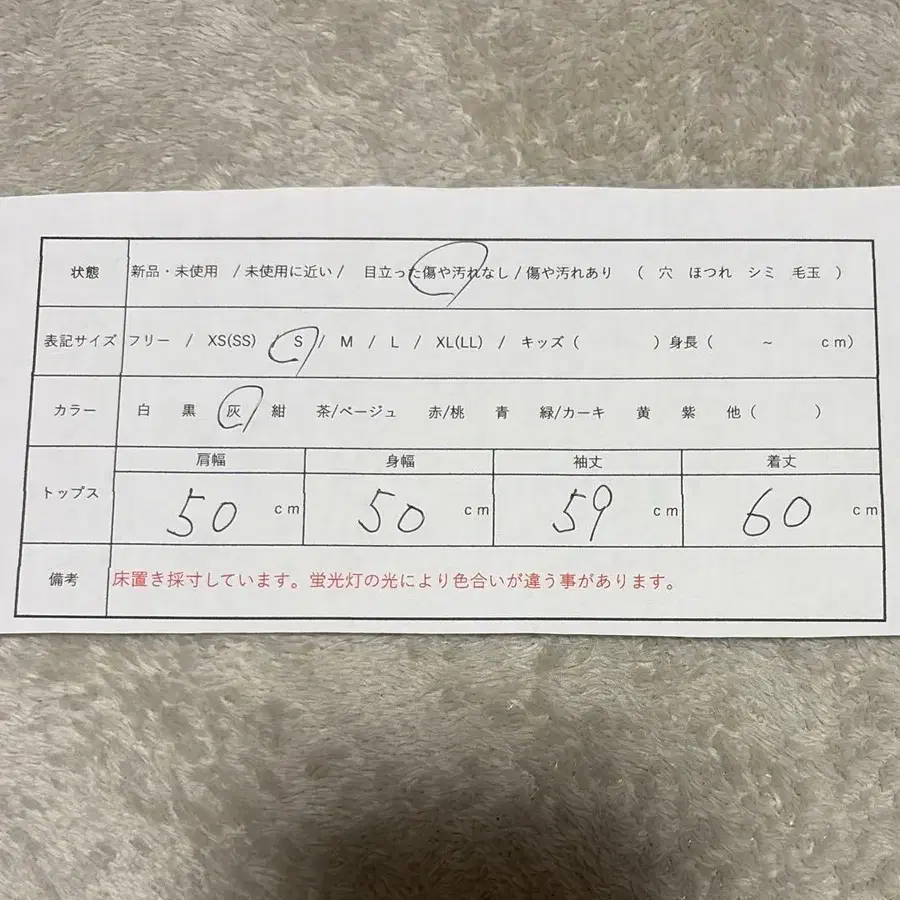 状態 新品・未使用 / 未使用に近い / 目立った傷や汚れなし / 傷や汚れあり ( 穴 ほつれ シミ 毛玉 )
表記サイズ フリー / XS(SS) / S / M / L / XL(LL) / キッズ ( ) 身長 ( ~ cm)
カラー 白 黒 灰 紺 茶/ベージュ 赤/桃 青 緑/カーキ 黄 紫 他 ( )
トップス 肩幅 身幅 袖丈 着丈
50 cm 50 cm 59 cm 60 cm
備考 床置き採寸しています。蛍光灯の光により色合いが違う事があります。